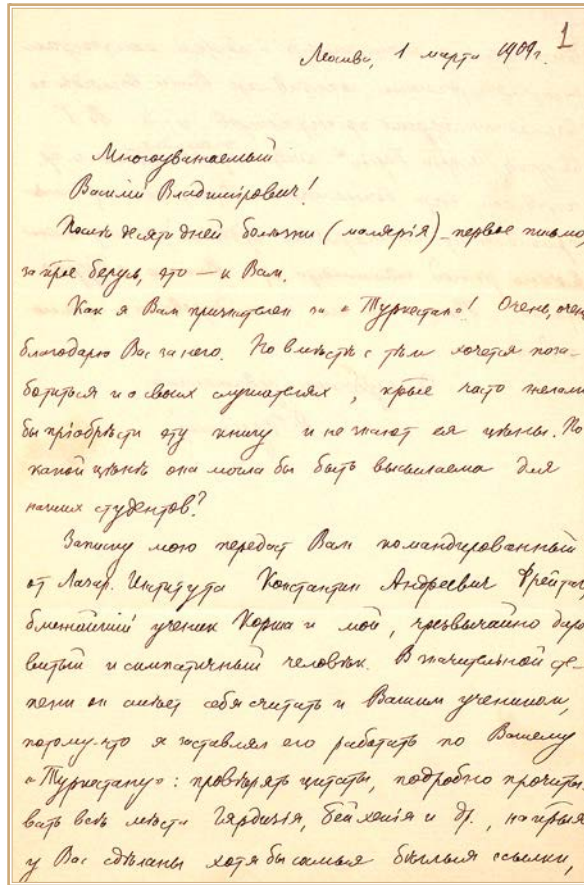 1
Москва, 1 марта 1909 г.
Многоуважаемый
Василій Владиміровичъ!
Послѣ десяти дней болѣзни (малярія) – первое письмо,
за крое берусь, это – к Вам.
Как я Вам признателен за «Туркестан»! Очень, очень
благодарю Вас за него. Но вмѣстѣ с тѣм хочется поза-
ботиться и о своих слушателях, крые часто желали
бы пріобрѣсти эту книгу и не знают ея цѣны. По
какой цѣнѣ она могла бы быть высылаема для
наших студентов?
Записку мою передаст Вам командированный
от Лазар. Института Константин Андреевич Фрейтаг,
ближайшій ученик Корша и мой, чрезвычайно даро-
витый и симпатичный человѣк. В значительной сте-
пени он смѣет себя считать и Вашим учеником,
потому-что я заставлял его работать по Вашему
«Туркестану»: провѣрять цитаты, подробно прочиты-
вать всѣ мѣста Гардизія, Бейхакія и др., на крыя
у Вас сдѣланы хотя бы самыя бѣглыя ссылки,